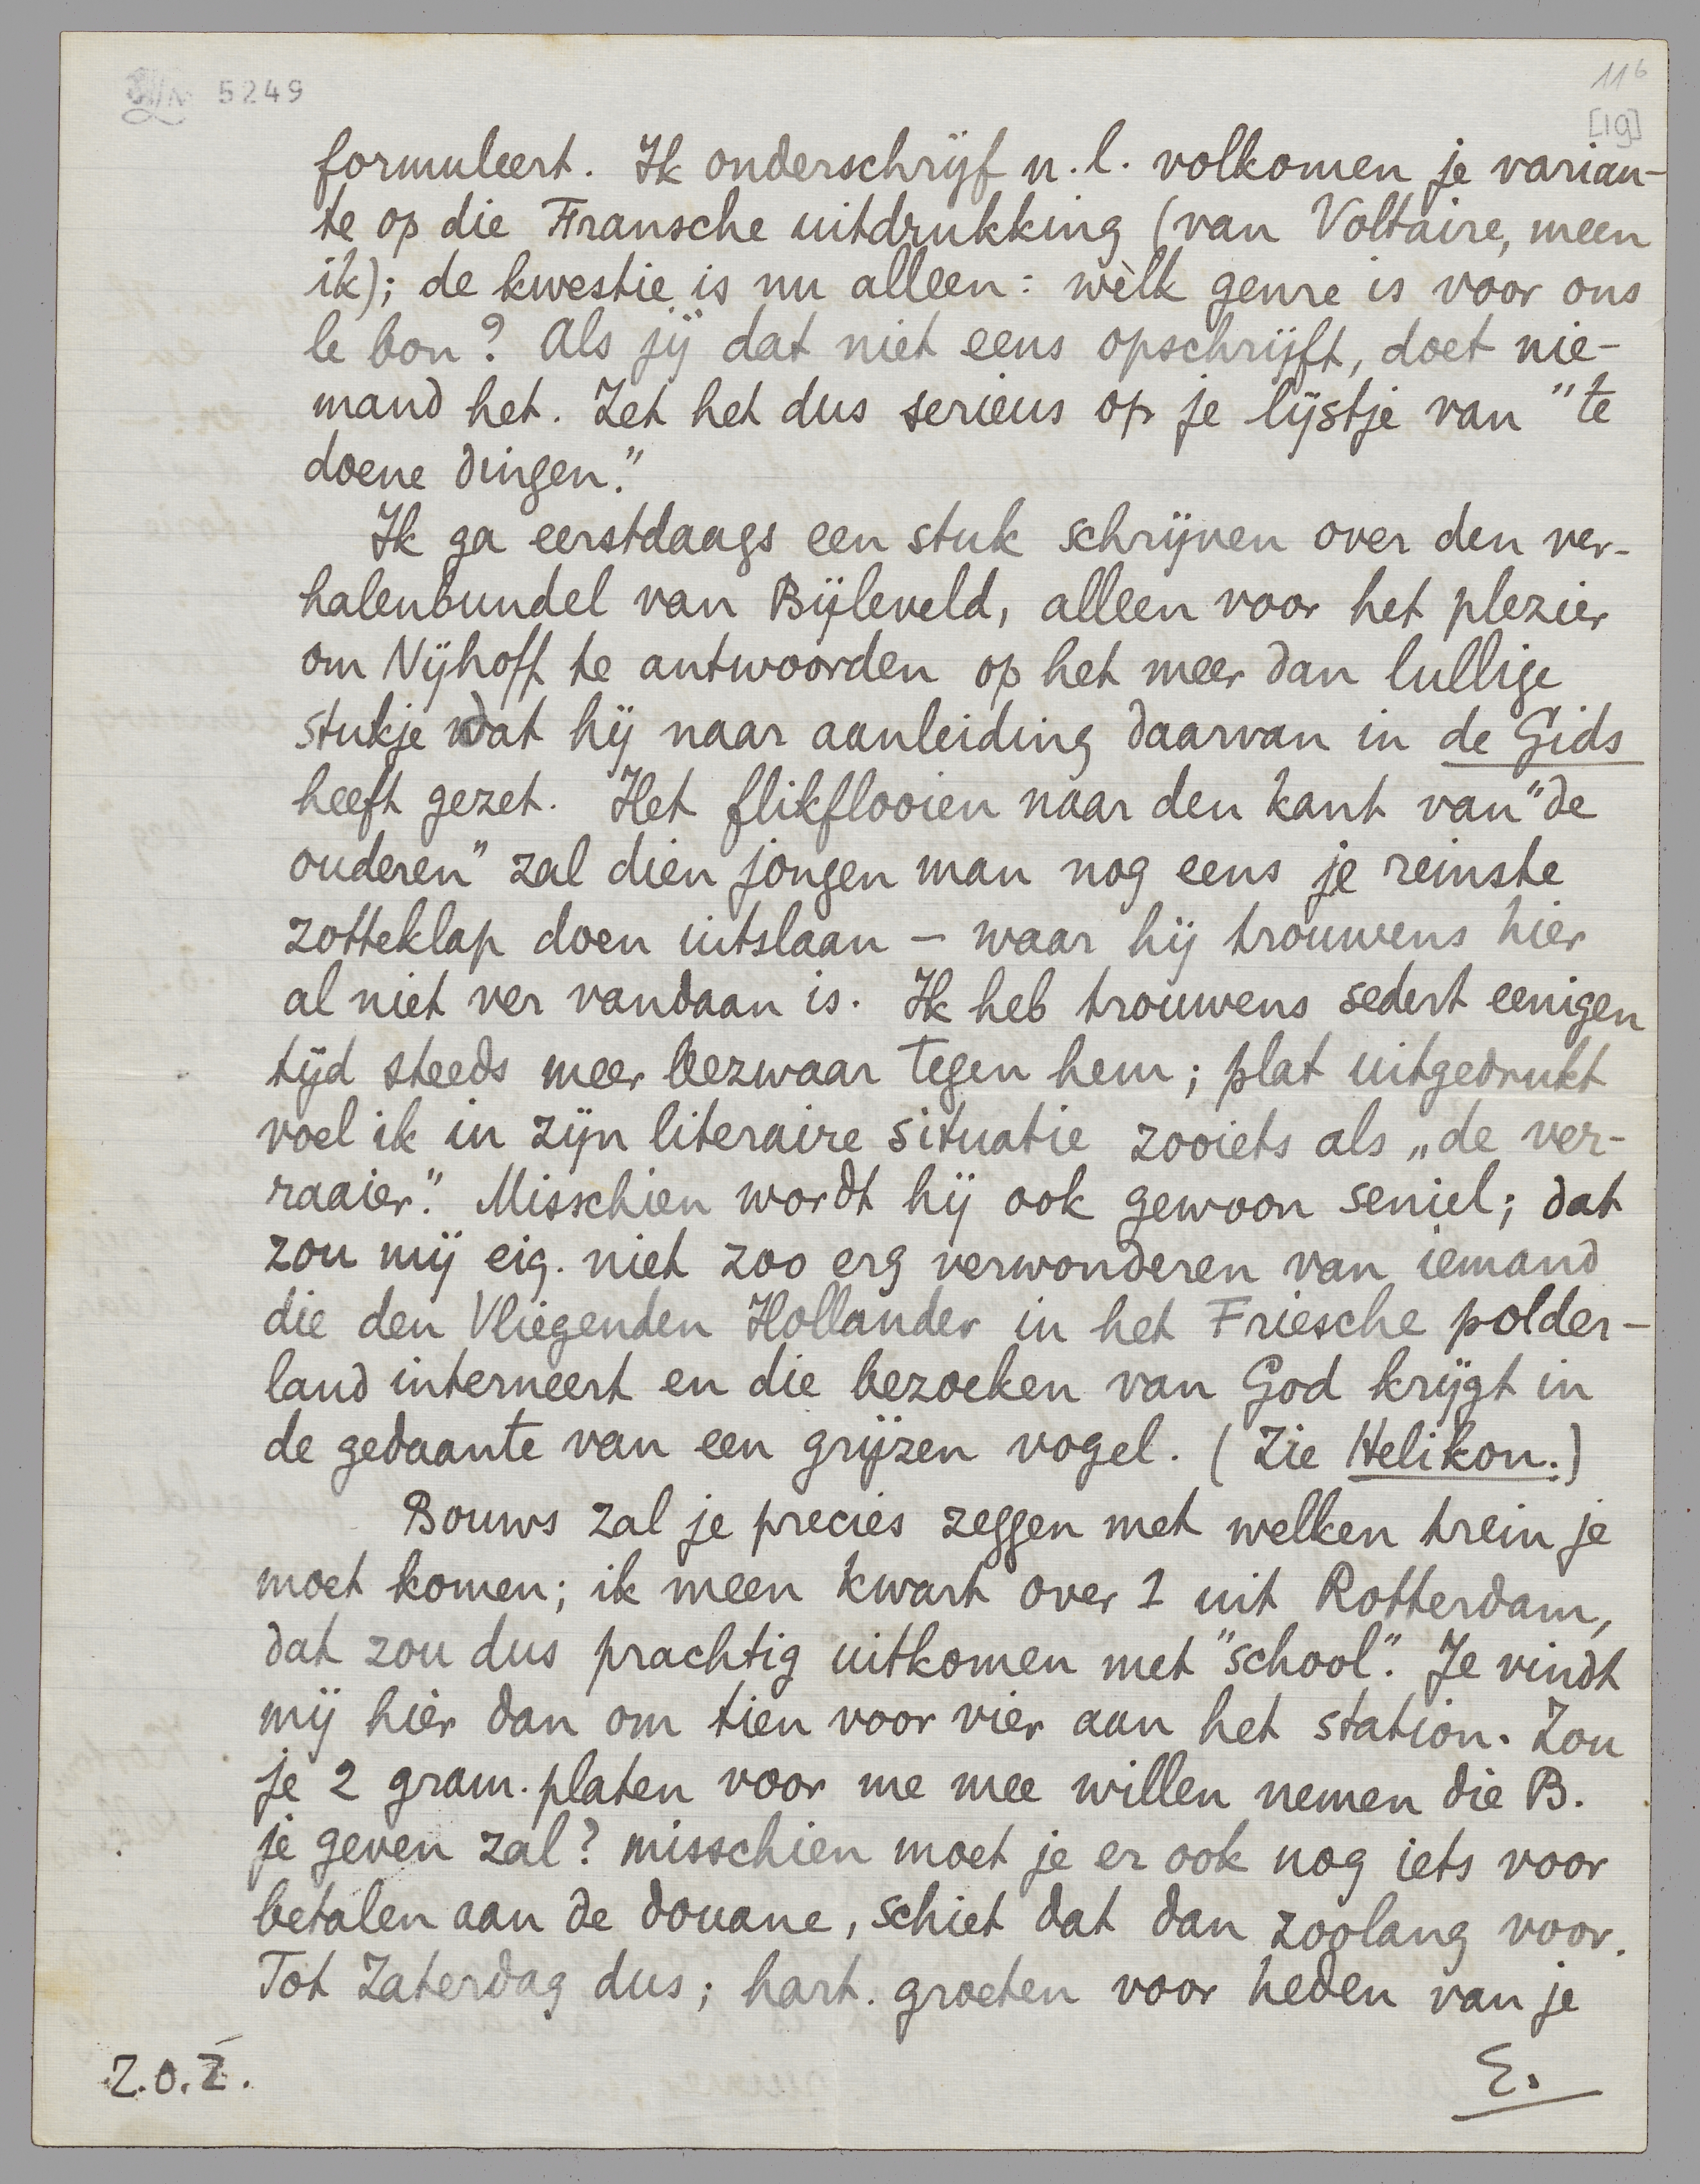 5249
116
[19]
formuleert. Ik onderschrijf n.l. volkomen je varian-
te op die Fransche uitdrukking (van Voltaire, meen
ik); de kwestie is nu alleen: wèlk genre is voor ons
le bon? Als jij dat niet eens opschrijft, doet nie-
mand het. Zet het dus serieus op je lijstje van "te
doene dingen."
Ik ga eerstdaags een stuk schrijven over den ver-
halenbundel van Bijleveld, alleen voor het plezier
om Nijhoff te antwoorden op het meer dan lullige
stukje dat hij naar aanleiding daarvan in de Gids
heeft gezet. Het flikflooien naar den kant van "de
ouderen" zal dien jongen man nog eens je reinste
zotteklap doen uitslaan – waar hij trouwens hier
al niet ver vandaan is. Ik heb trouwens sedert eenigen
tijd steeds meer bezwaar tegen hem; plat uitgedrukt
voel ik in zijn literaire situatie zooiets als „de ver-
raaier." Misschien wordt hij ook gewoon seniel; dat
zou mij eig. niet zoo erg verwonderen van iemand
die den Vliegenden Hollander in het Friesche polder-
land interneert en die bezoeken van God krijgt in
de gedaante van een grijzen vogel. (Zie Helikon.)
Bouws zal je precies zeggen met welken trein je
moet komen; ik meen kwart over 1 uit Rotterdam,
dat zou dus prachtig uitkomen met "school". Je vindt
mij hier dan om tien voor vier aan het station. Zou
je 2 gram. platen voor me mee willen nemen die B.
je geven zal? misschien moet je er ook nog iets voor
betalen aan de douane, schiet dat dan zoolang voor.
Tot Zaterdag dus; hart. groeten voor heden van je
E.
Z.O.Z.